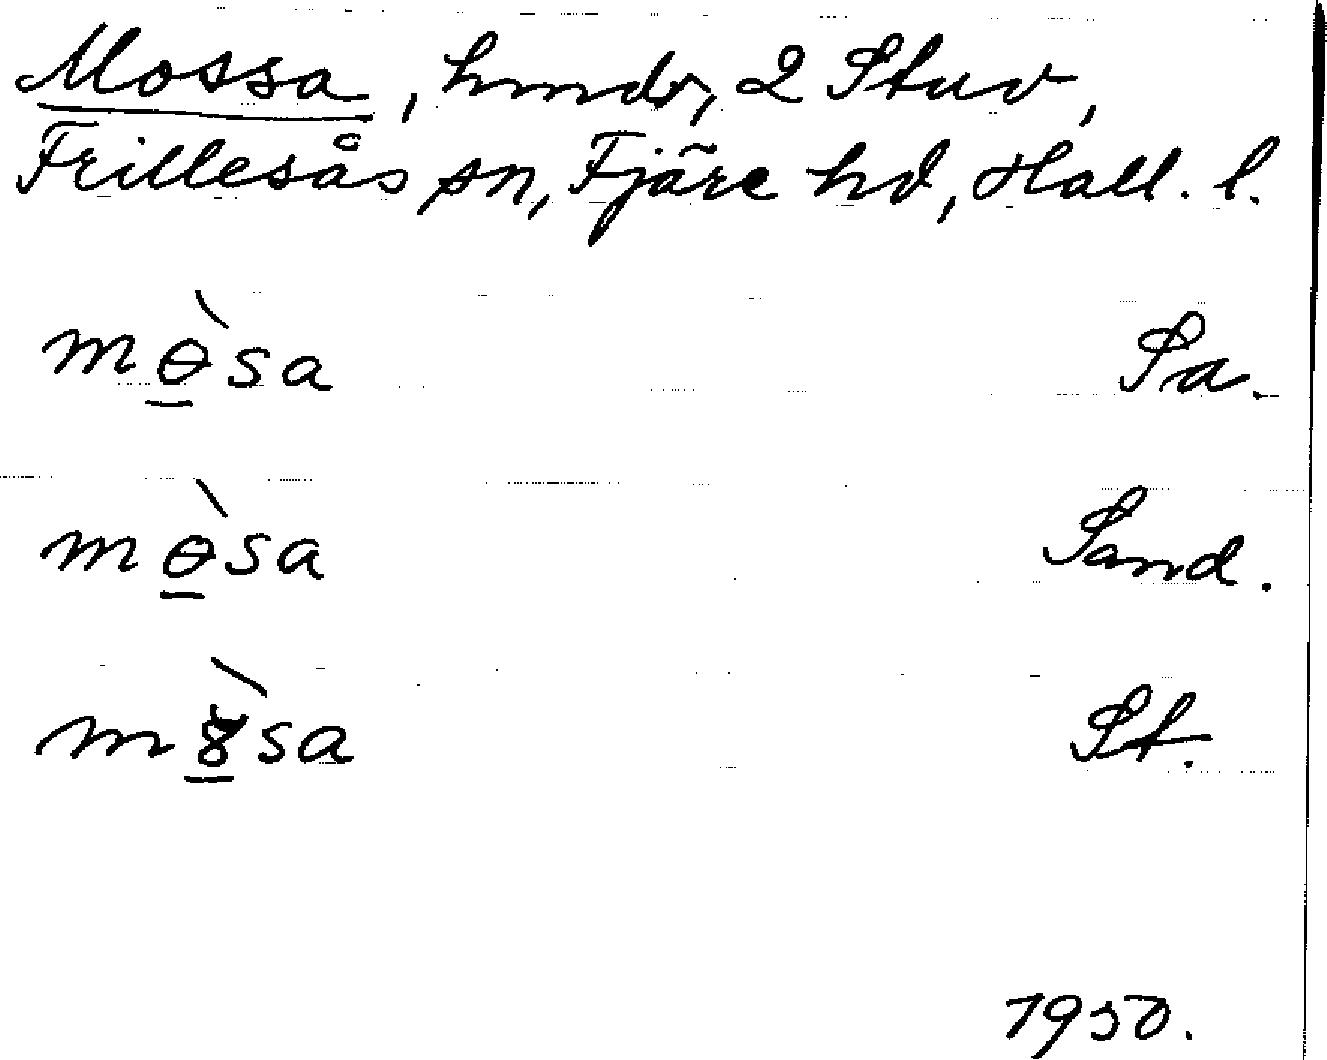 Mossa, hmdr, 2 Stuv,
Frillesås sn, Fjäre hd, Hall. l.
mɵ̲̀sa Sa.
mɵ̲̀sa Sand.
m sa St.
1950.